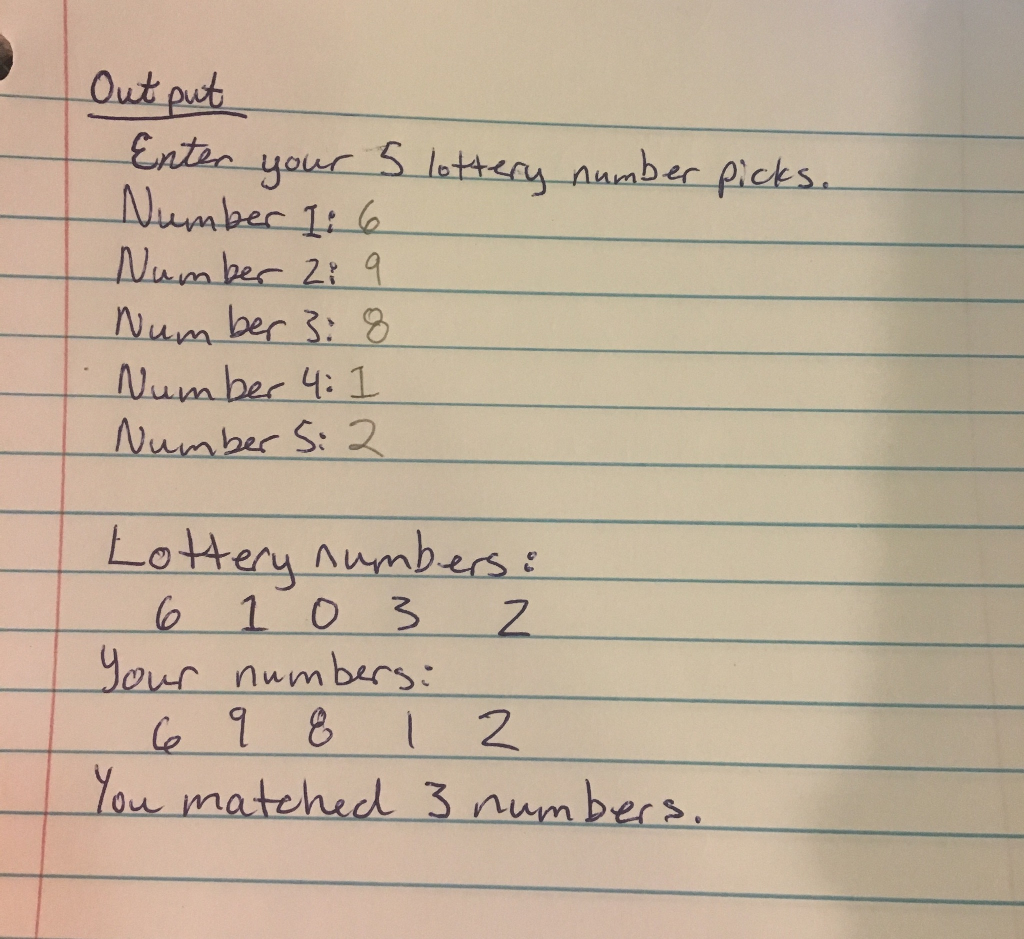 Output
Enter your 5 lottery number picks.
Number 1: 6
Number 2: 9
Number 3: 8
Number 4: 1
Number 5: 2
Lottery numbers:
6 1 0 3 2
Your numbers:
6 9 8 1 2
You matched 3 numbers.